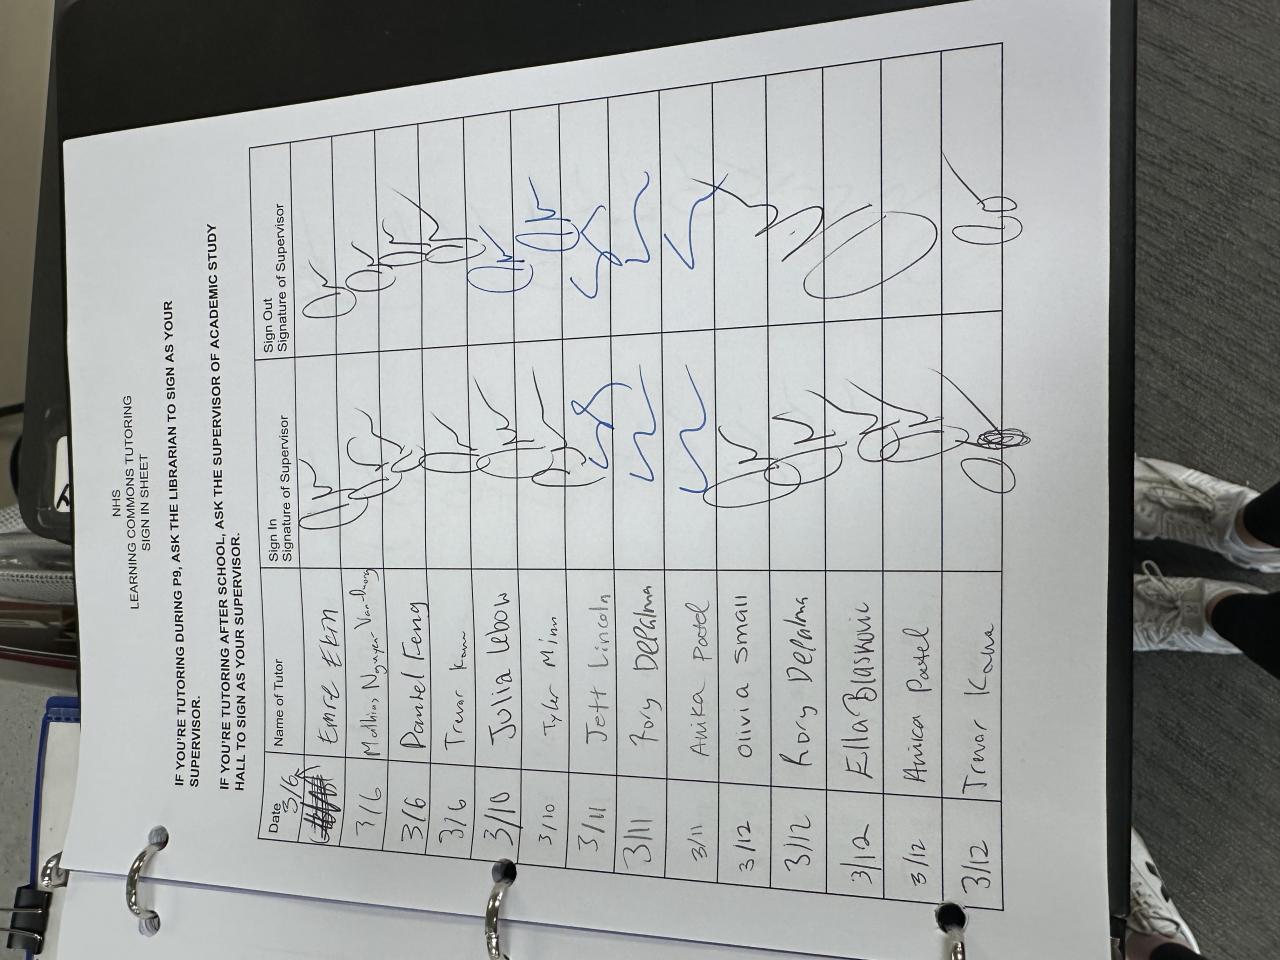 NHS
LEARNING COMMONS TUTORING
SIGN IN SHEET
IF YOU'RE TUTORING DURING P9, ASK THE LIBRARIAN TO SIGN AS YOUR
SUPERVISOR.
IF YOU'RE TUTORING AFTER SCHOOL, ASK THE SUPERVISOR OF ACADEMIC STUDY
HALL TO SIGN AS YOUR SUPERVISOR.
Date Name of Tutor Sign In Signature of Supervisor Sign Out Signature of Supervisor
3/6 Emre Ekin
3/6 Mathias Nguyen Van-Duong
3/6 Daniel Feng
3/6 Trevor Kana
3/10 Julia Lebow
3/10 Tyler Minn
3/11 Jett Lincoln
3/11 Rory DePalma
3/11 Anika Patel
3/12 Olivia Small
3/12 Rory DePalma
3/12 Ella Blaskovic
3/12 Anika Patel
3/12 Trevor Kana